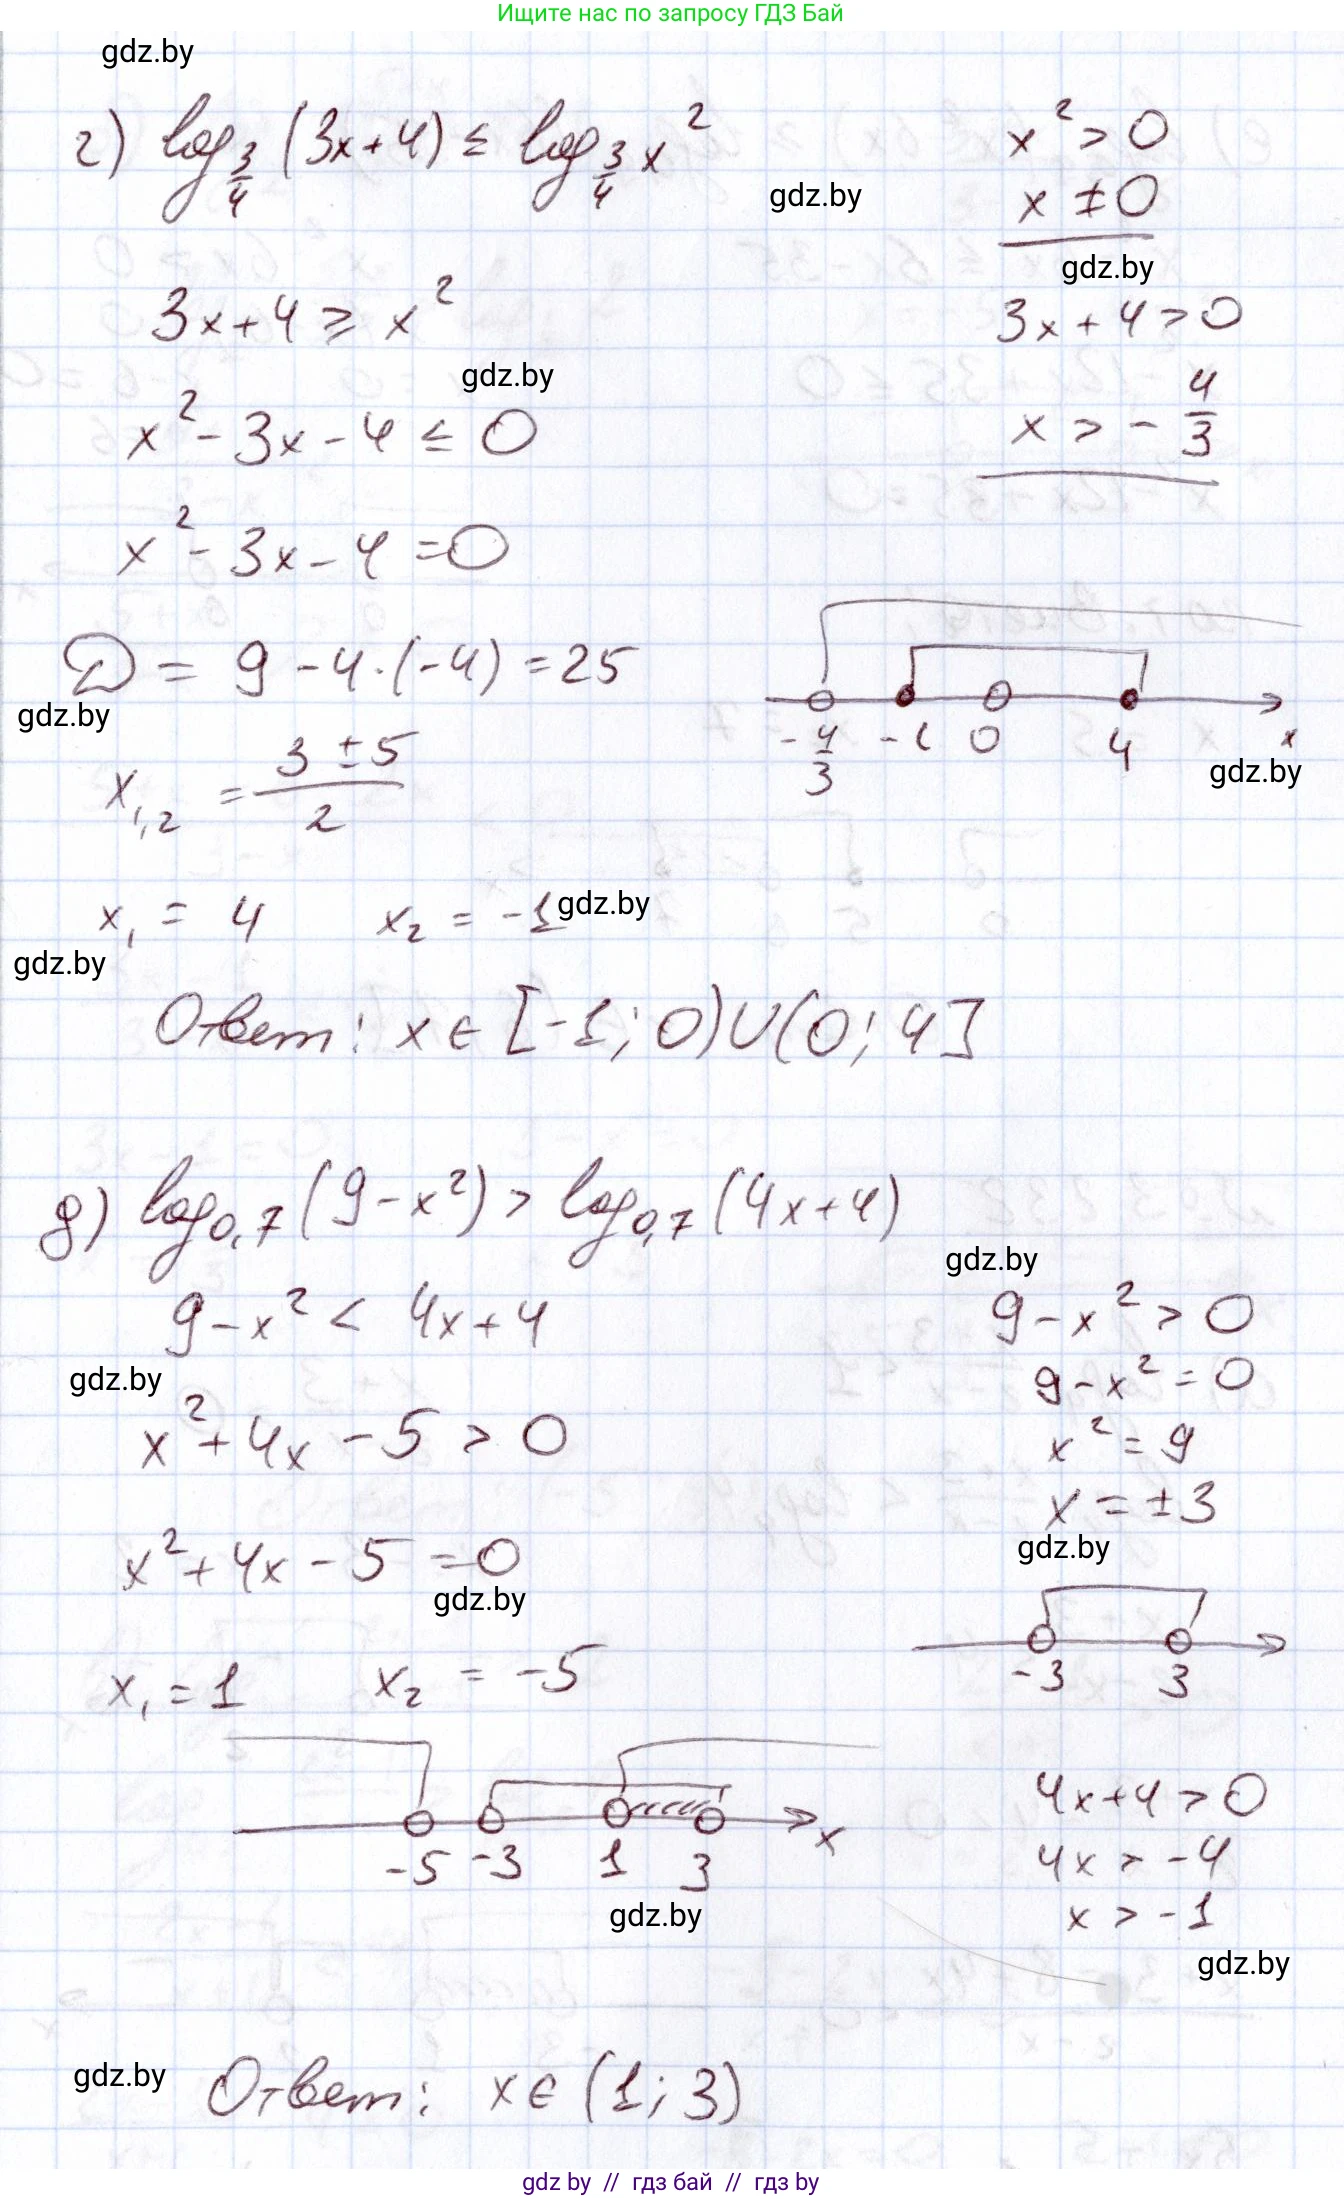 Ищите нас по запросу ГДЗ Бай
gdz.by
г) log_{3/4} (3x+4) ≤ log_{3/4} x²
x² > 0
gdz.by
x ≠ 0
gdz.by
3x+4 ≥ x²
3x+4 > 0
gdz.by
x² - 3x - 4 ≤ 0
x > - 4/3
x² - 3x - 4 = 0
D = 9 - 4·(-4) = 25
gdz.by
-4/3 -1 0 4 x
gdz.by
x_{1,2} = (3 ± 5)/2
x₁ = 4 x₂ = -1
gdz.by
gdz.by
Ответ: x ∈ [-1; 0)∪(0; 4]
д) log_{0,7} (9-x²) > log_{0,7} (4x+4)
gdz.by
9-x² < 4x+4
9-x² > 0
gdz.by
9-x² = 0
x² + 4x - 5 > 0
x² = 9
x = ±3
gdz.by
x² + 4x - 5 = 0
gdz.by
-3 3
x₁ = 1 x₂ = -5
4x+4 > 0
-5 -3 1 3 x
4x > -4
gdz.by
x > -1
gdz.by
gdz.by
Ответ: x ∈ (1; 3)
gdz by // гдз бай // гдз by